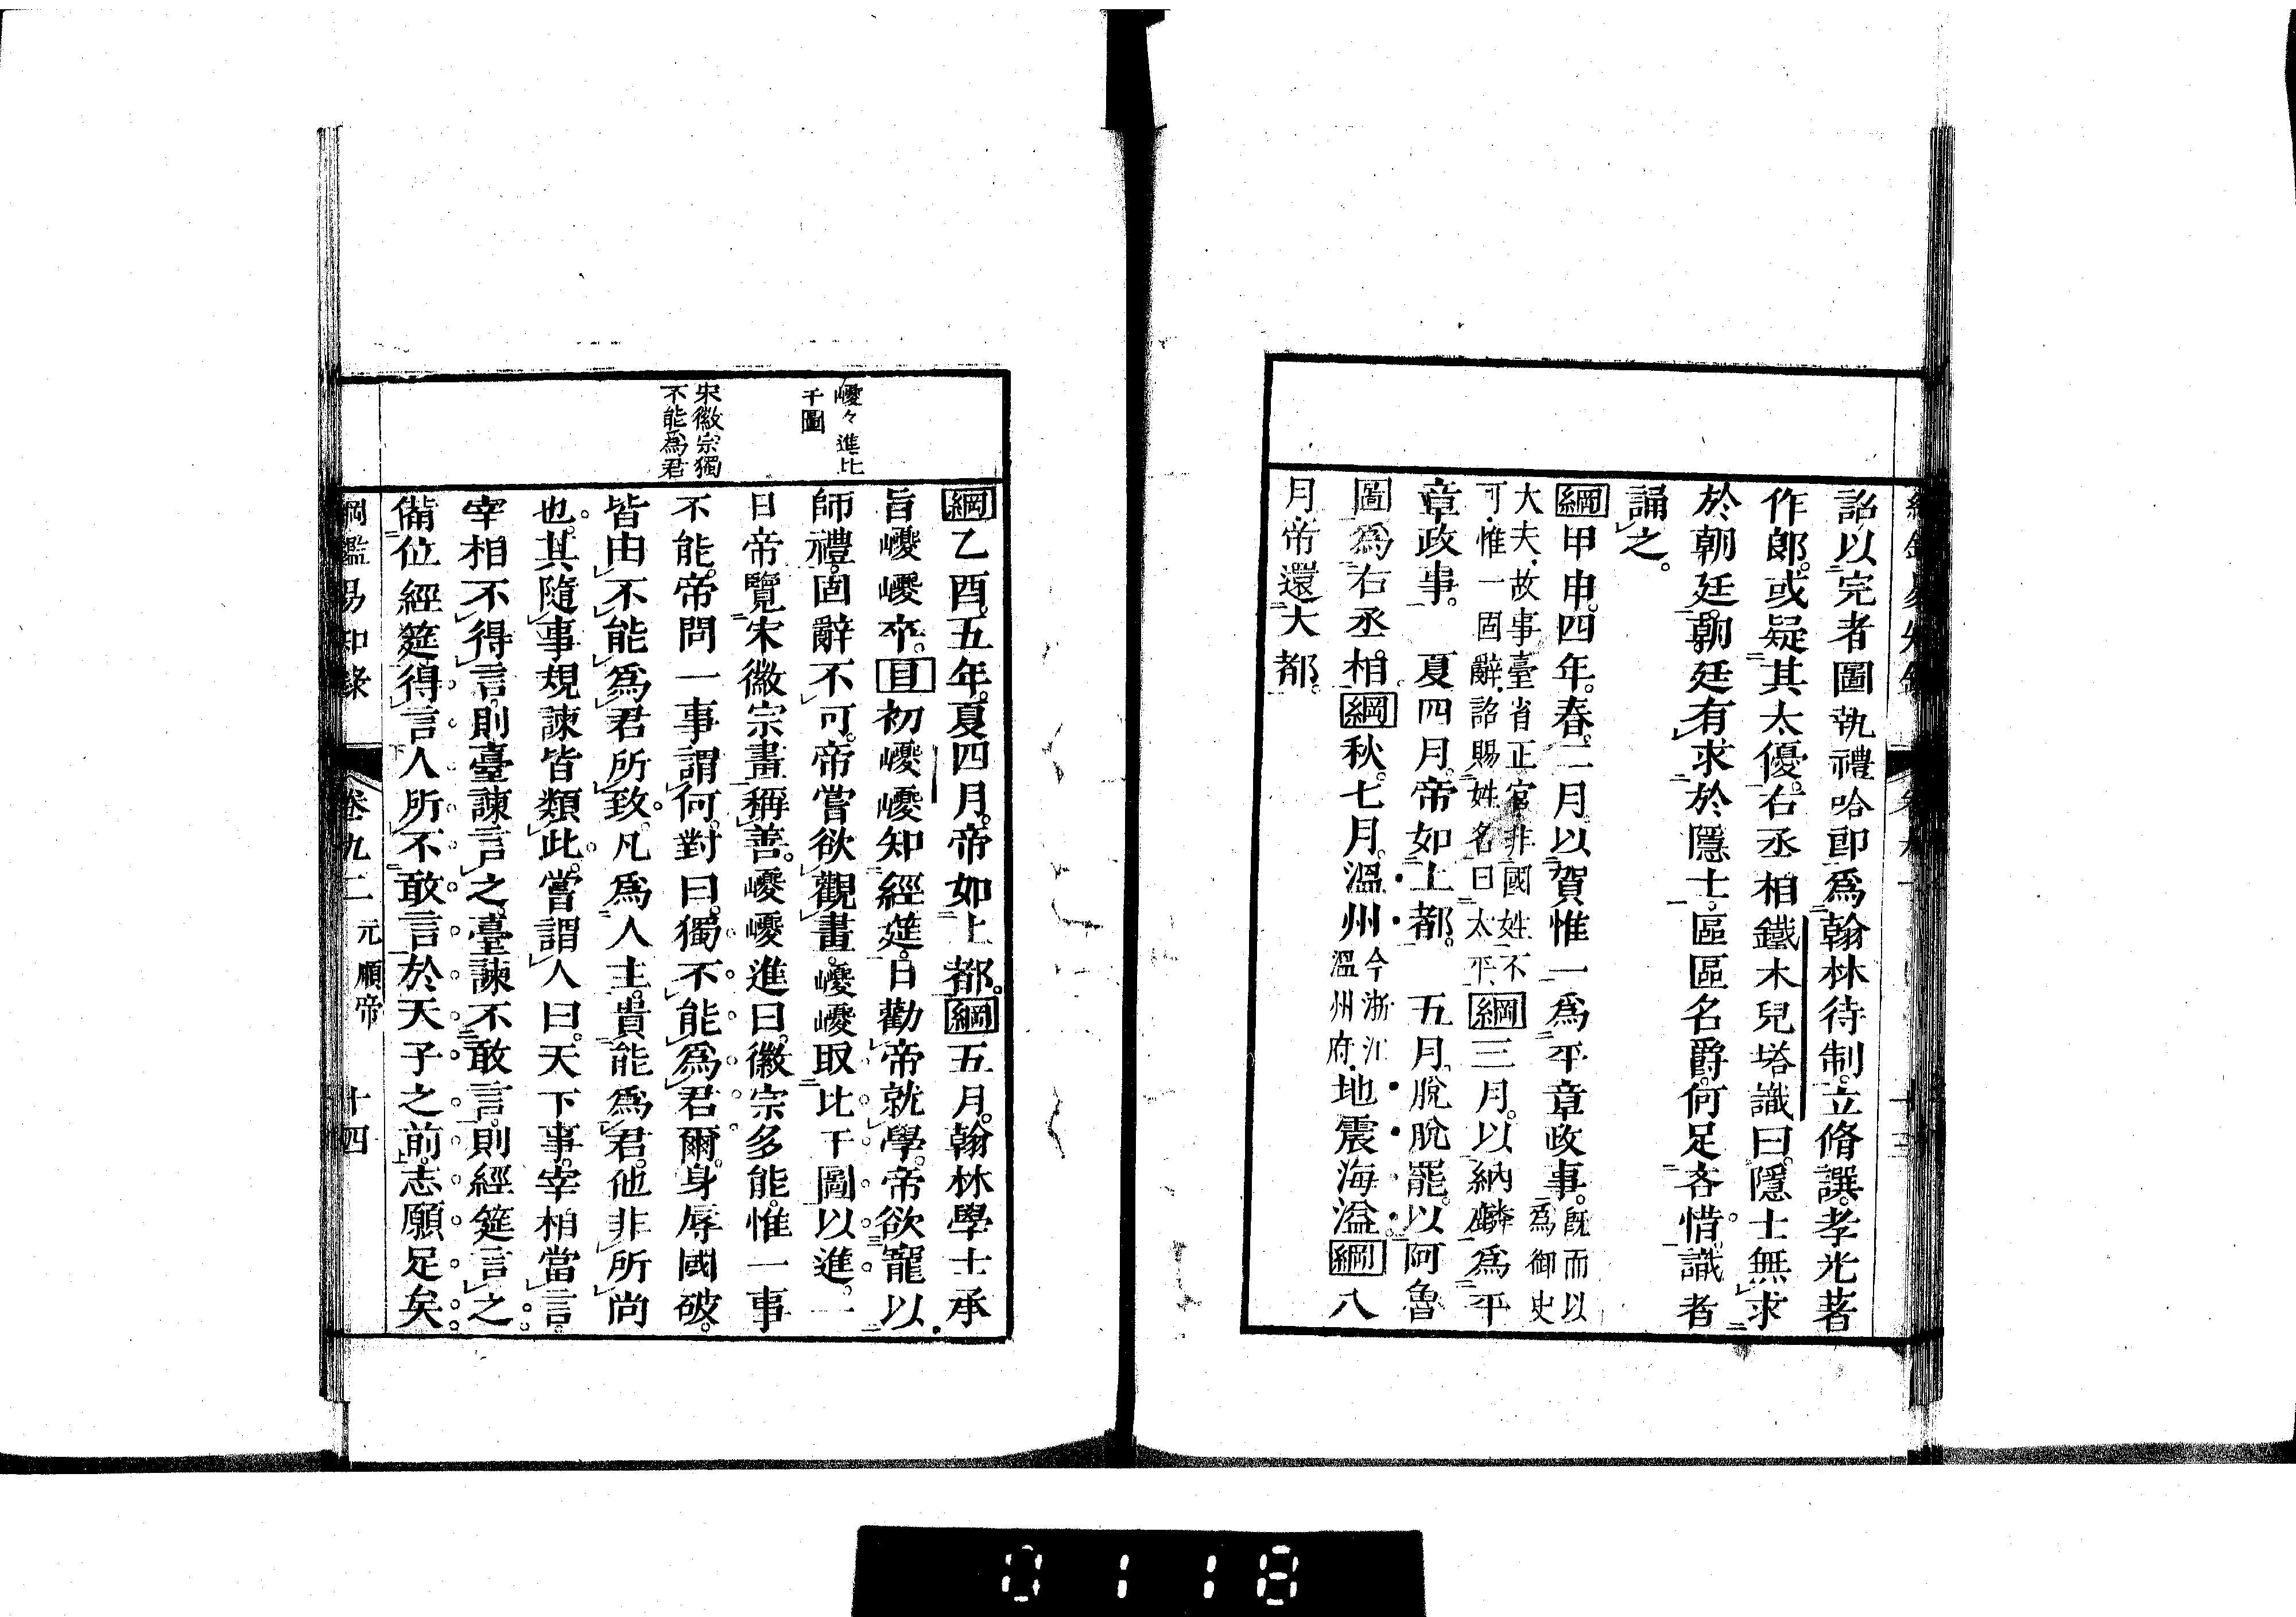 詔以完者圖執禮哈郎爲翰林待制立脩譔孝光著
作郎。或疑其太優。右丞相鐵木兒塔識曰。隱士無求
於朝廷。朝廷有求於隱士。區區名爵。何足吝惜。識者
誦之。
綱甲申。四年。春。二月。以賀惟一爲平章政事。既而以爲御史
大夫。故事臺省正官非國姓不
可。惟一固辭。詔賜姓名曰太平。綱三月。以納麟爲平
章政事。 夏四月。帝如上都。 五月。脫脫罷。以阿魯
圖爲右丞相。綱秋。七月。溫州今浙江溫州府。地震海溢。綱八
月。帝還大都。
巙々進比
干圖
宋徽宗獨
不能爲君
綱乙酉。五年。夏四月。帝如上都。綱五月。翰林學士承
旨巙巙卒。目初巙巙知經筵。日勸帝就學。帝欲寵以
師禮。固辭不可。帝嘗欲觀畫。巙巙取比干圖以進。一
日帝覽宋徽宗畫稱善。巙巙進曰。徽宗多能。惟一事
不能。帝問一事謂何。對曰。獨不能爲君爾。身辱國破。
皆由不能爲君所致。凡爲人主。貴能爲君。他非所尚
也。其隨事規諫皆類此。嘗謂人曰。天下事。宰相當言。
宰相不得言。則臺諫言之。臺諫不敢言。則經筵言之。
備位經筵得言人所不敢言於天子之前。志願足矣
綱鑑易知錄 卷九二 元順帝 十四